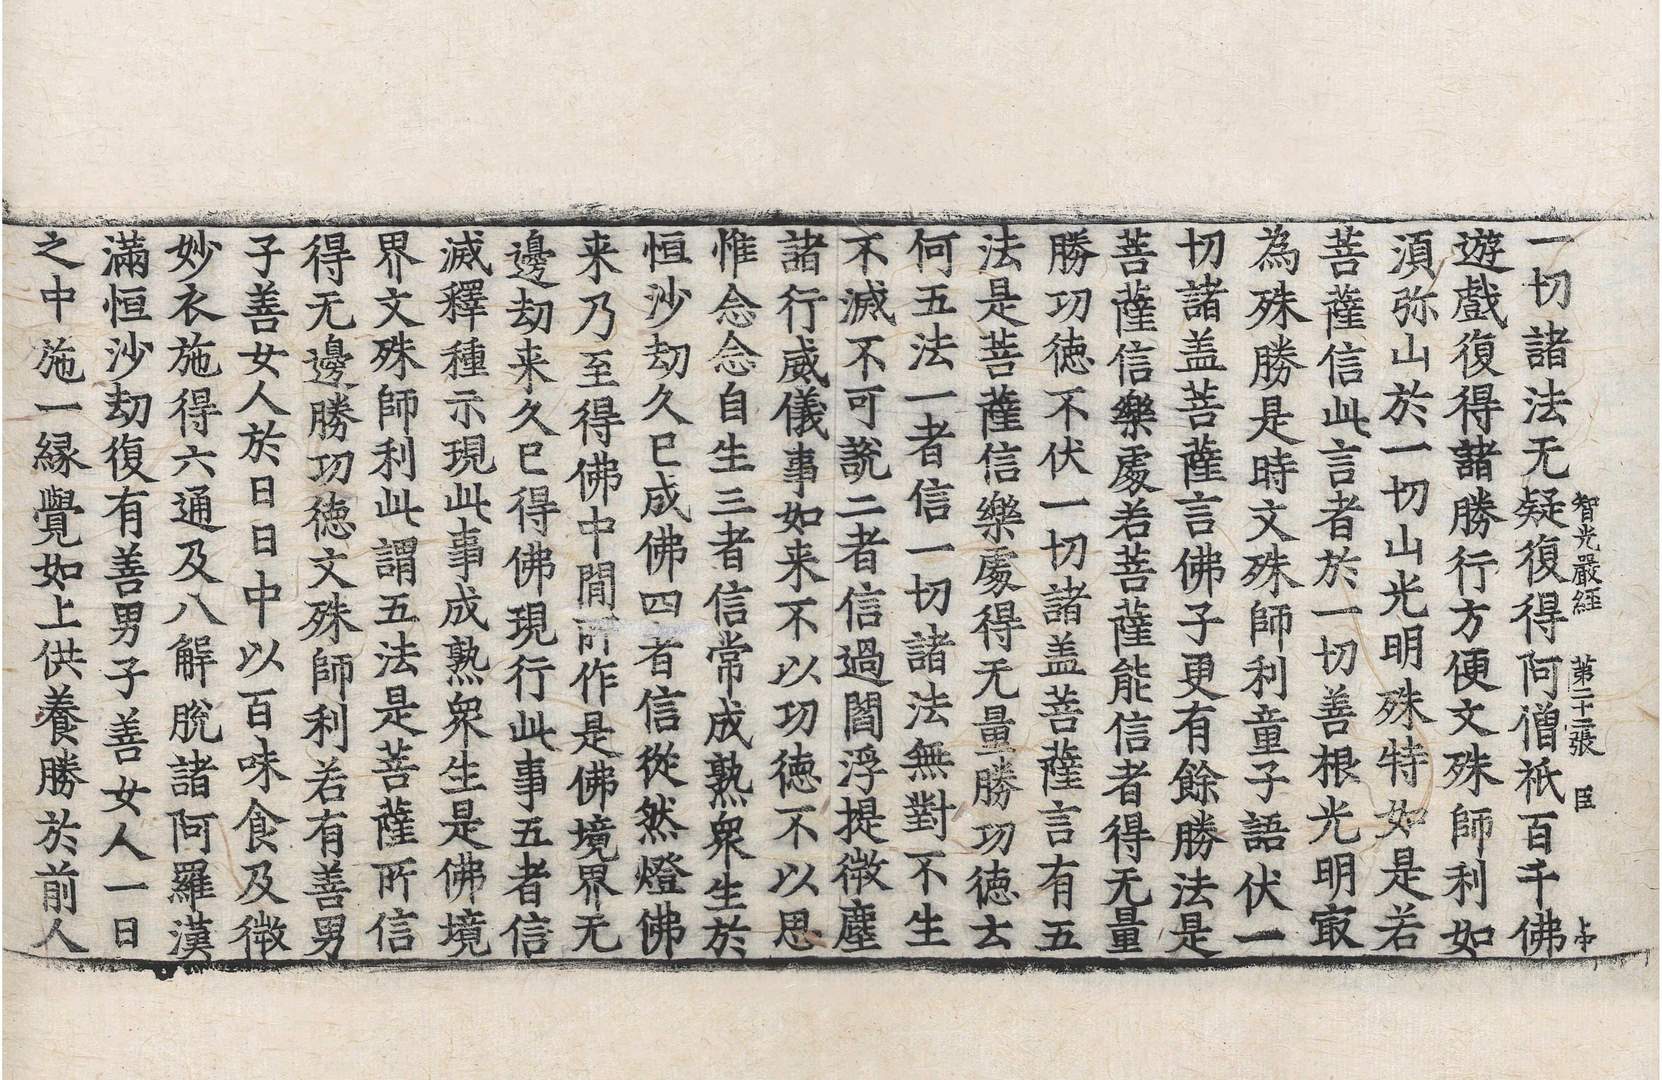 智光嚴経　第二十二張　臣
一切諸法无疑復得阿僧祇百千佛
遊戲復得諸勝行方便文殊師利如
湏弥山於一切山光明殊特如是若
菩薩信此言者於一切善根光明㝡
為殊勝是時文殊師利童子語伏一
切諸盖菩薩言佛子更有餘勝法是
菩薩信樂處若菩薩能信者得无量
勝功徳不伏一切諸盖菩薩言有五
法是菩薩信樂處得无量勝功徳云
何五法一者信一切諸法無對不生
不滅不可說二者信過閻浮提微塵
諸行威儀事如来不以功徳不以思
惟念念自生三者信常成熟衆生於
恒沙劫久已成佛四者信從然燈佛
来乃至得佛中間所作是佛境界无
邊劫来久已得佛現行此事五者信
滅釋種示現此事成熟衆生是佛境
界文殊師利此謂五法是菩薩所信
得无邊勝功徳文殊師利若有善男
子善女人於日日中以百味食及微
妙衣施得六通及八解脫諸阿羅漢
滿恒沙劫復有善男子善女人一日
之中施一縁覺如上供養勝於前人